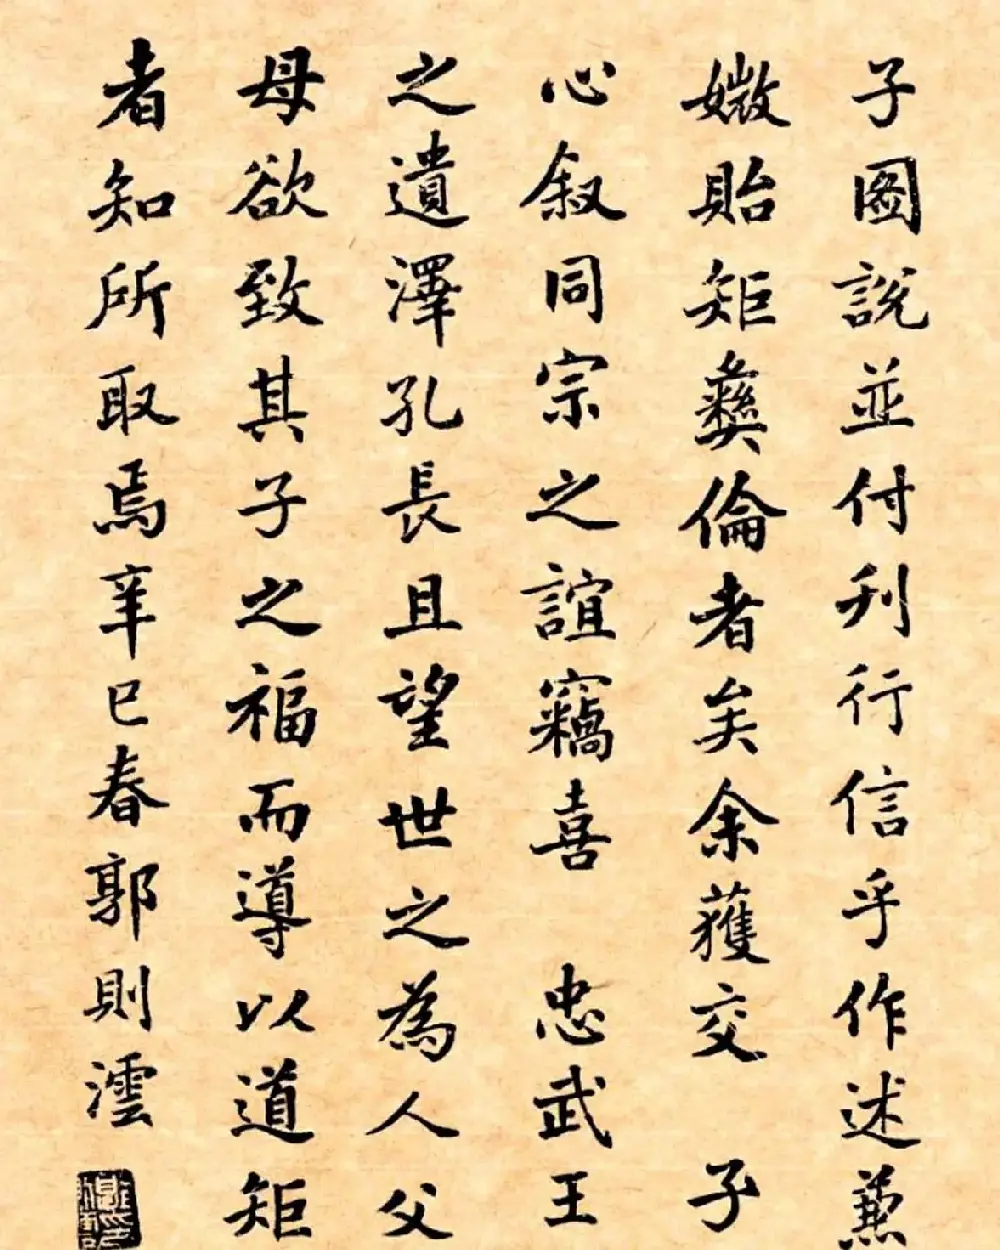 子圖說並付刋行信乎作述兼
媺貽矩彝倫者矣余獲交 子
心叙同宗之誼竊喜 忠武王
之遺澤孔長且望世之為人父
母欲致其子之福而導以道矩
者知所取焉辛巳春郭則澐